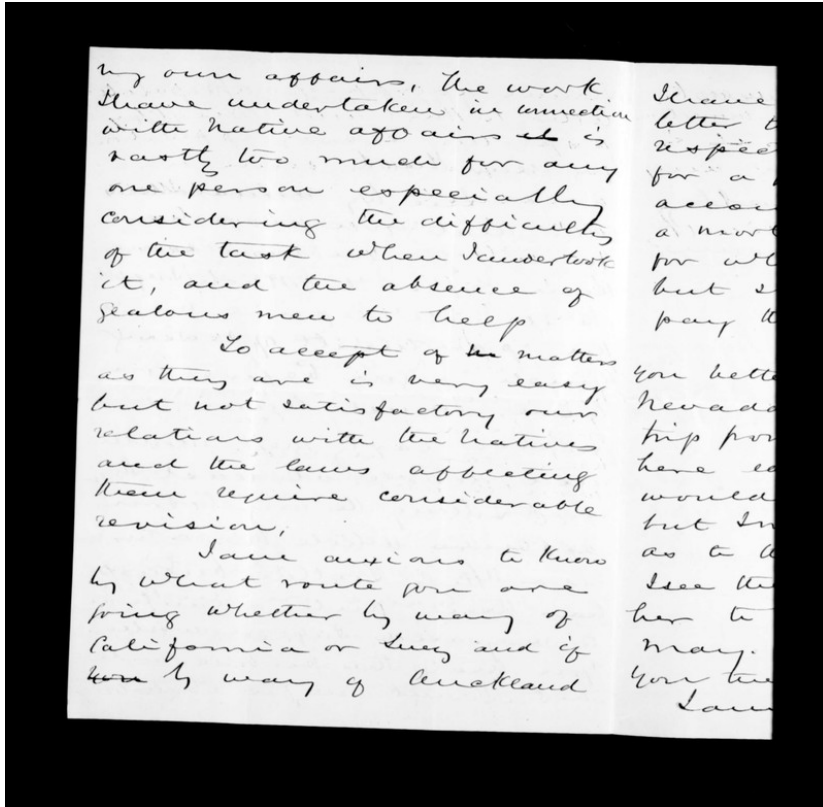 my own affairs, the work
I have undertaken in connection
with Native affairs it is
vastly too much for any
one person especially
considering the difficulty
of the task when I undertook
it, and the absence of
zealous men to help
To accept of in matters
as they are is very easy
but not satisfactory our
relations with the Natives
and the laws affecting
them require considerable
revision.
I am anxious to know
by what route you are
going whether by way of
California or Suez and if
you by way of Auckland
I have
letter
respec
for a
accou
a mort
for wh
but I
pay th
you bette
Nevada
trip from
here
would
but I
as to
I see the
her to
May.
you the
I am